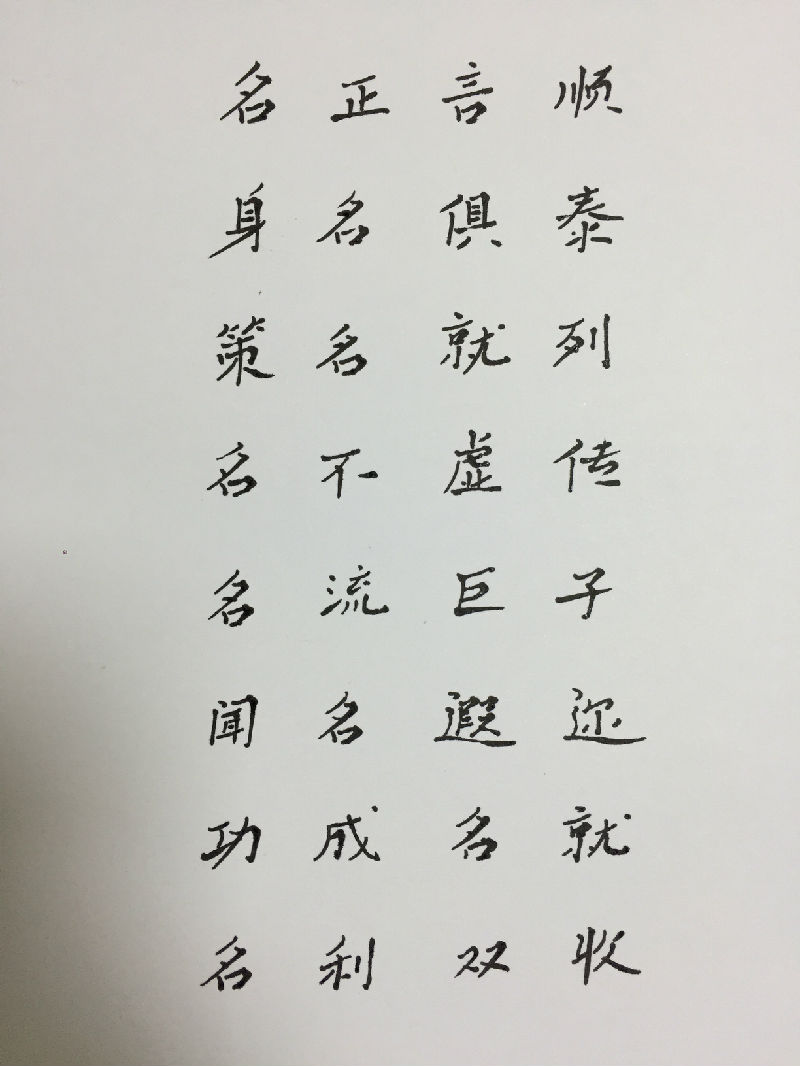 名正言顺
身名俱泰
策名就列
名不虚传
名流巨子
闻名遐迩
功成名就
名利双收